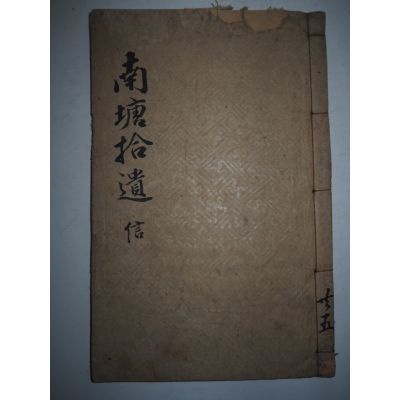 南塘拾遺 信
共五